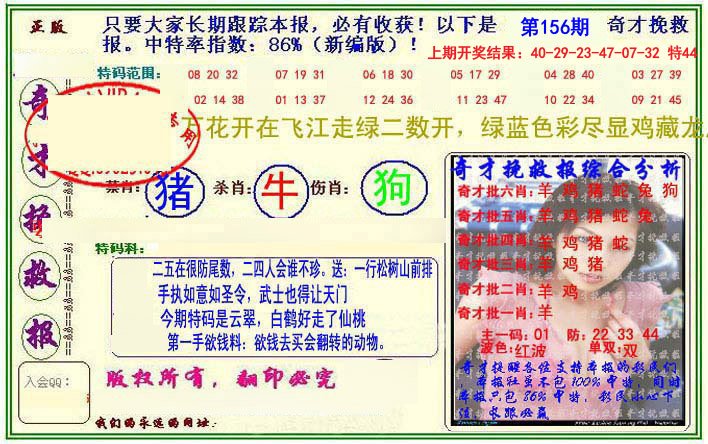 正版
只要大家长期跟踪本报，必有收获！以下是 第156期 奇才挽救
报。中特率指数：86%（新编版）！
上期开奖结果：40-29-23-47-07-32 特44
特码范围：
08 20 32 07 19 31 06 18 30 05 17 29 04 28 40 03 27 39
02 14 38 01 13 37 12 24 36 11 23 47 10 22 34 09 21 45
万花开在飞江走绿二数开，绿蓝色彩尽显鸡藏龙
禁肖：猪 杀肖：牛 伤肖：狗
奇
才
救
报
特码料：
二五在很防尾数，二四人会谁不珍。送：一行松树山前排
手执如意如圣令，武士也得让天门
今期特码是云翠，白鹤好走了仙桃
第一手欲钱料：欲钱去买会翻转的动物。
奇才挽救报综合分析
奇才批六肖：羊 鸡 猪 蛇 兔 狗
奇才批五肖：羊 鸡 猪 蛇 兔
奇才批四肖：羊 鸡 猪 蛇
奇才批三肖：羊 鸡 猪
奇才批二肖：羊 鸡
奇才批一肖：羊
主一码：01 防：22 33 44
波色：红波 单双：双
奇才提醒各位支持本报的彩民们
，本报狂虽不包100%中特，同时
本报只包86%中特，彩民小心下
注
入会QQ：
版权所有，翻印必究
我们的永远的网址：